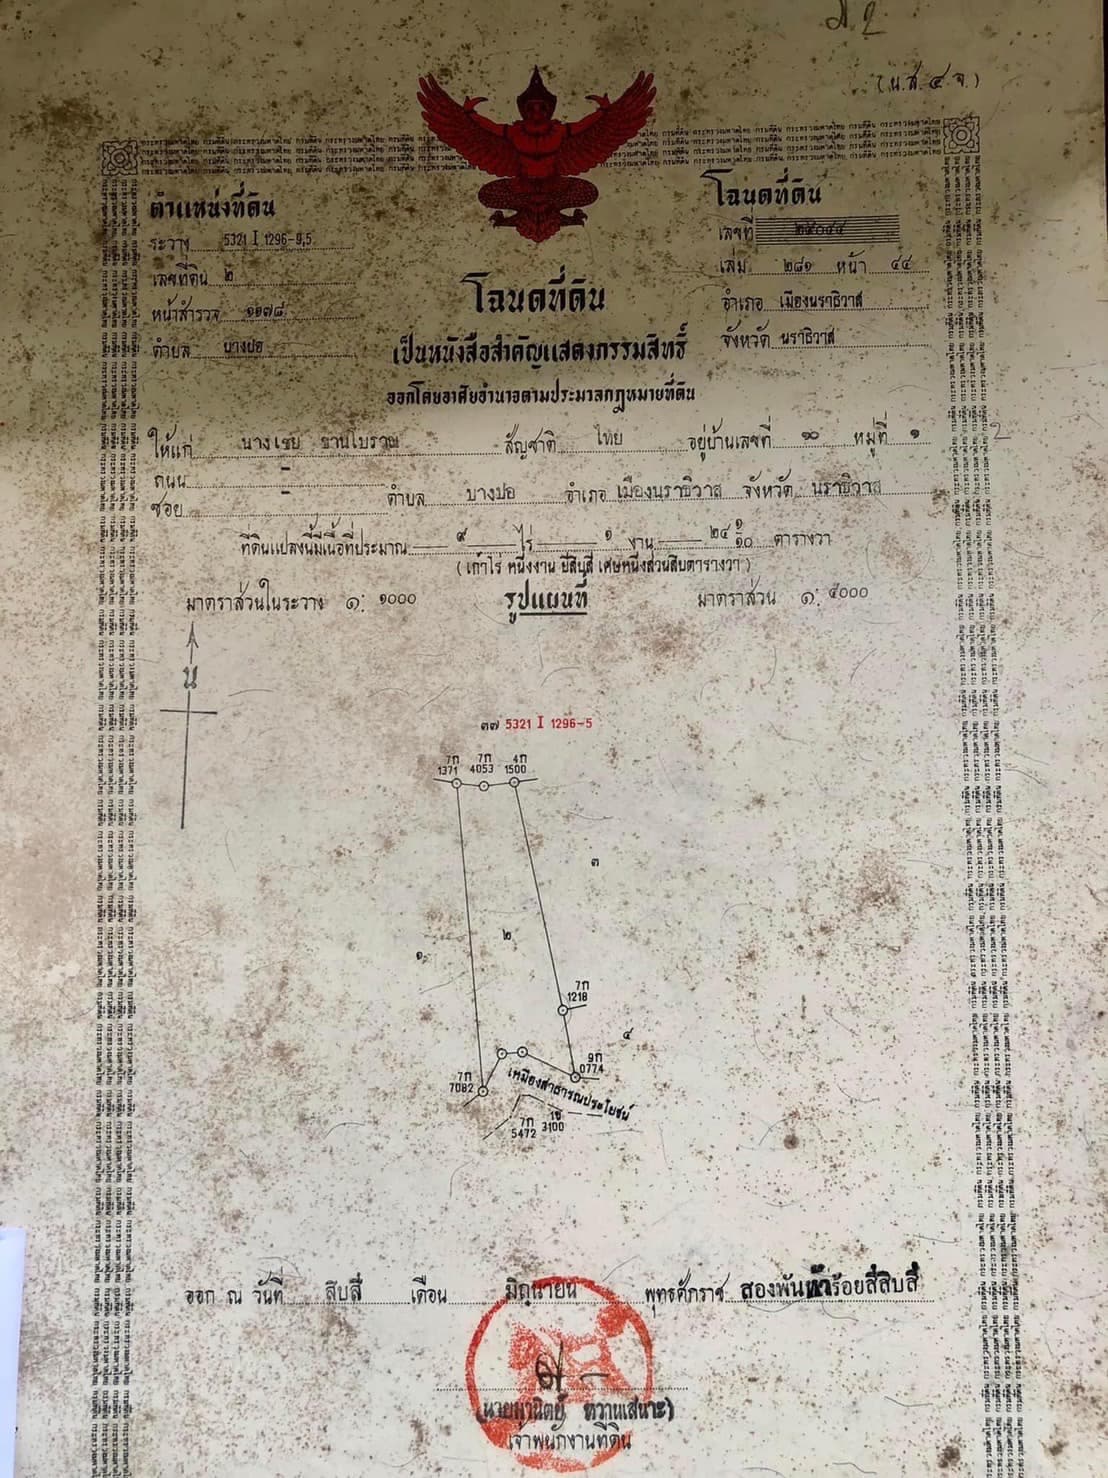 (น.ส. ๔ จ.)
ตำแหน่งที่ดิน
ระวาง 5321 I 1296-9,5
เลขที่ดิน ๒
หน้าสำรวจ ๑๑๗๘
ตำบล บางปอ
โฉนดที่ดิน
เลขที่ ๒๕๐๔๔
เล่ม ๒๘๑ หน้า ๔๔
อำเภอ เมืองนราธิวาส
จังหวัด นราธิวาส
โฉนดที่ดิน
เป็นหนังสือสำคัญแสดงกรรมสิทธิ์
ออกโดยอาศัยอำนาจตามประมวลกฎหมายที่ดิน
ให้แก่ นางเขย ชานโบราณ สัญชาติ ไทย อยู่บ้านเลขที่ ๑๐ หมู่ที่ ๑ 2
ถนน –
ซอย – ตำบล บางปอ อำเภอ เมืองนราธิวาส จังหวัด นราธิวาส
ที่ดินแปลงนี้มีเนื้อที่ประมาณ ๙ ไร่ ๑ งาน ๒๔ ๑/๑๐ ตารางวา
(เก้าไร่ หนึ่งงาน ยี่สิบสี่ เศษหนึ่งส่วนสิบตารางวา)
มาตราส่วนในระวาง ๑: ๑๐๐๐ รูปแผนที่ มาตราส่วน ๑: ๔๐๐๐
น
๓๗ 5321 I 1296-5
7ก 7ก 4ก
1371 4053 1500
๓
๒
๑
7ก
1218
๔
9ก
0774
7ก
7082
เหมืองสาธารณประโยชน์
7ก
5472
3100
ออก ณ วันที่ สิบสี่ เดือน มิถุนายน พุทธศักราช สองพันห้าร้อยสี่สิบสี่
(นายพานิตย์ หวานเสนาะ)
เจ้าพนักงานที่ดิน